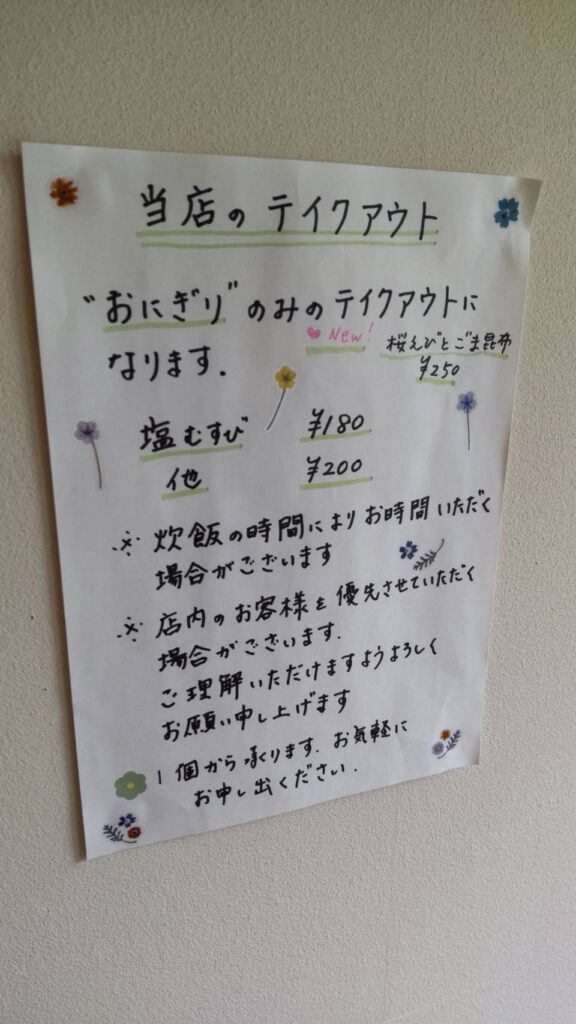 当店のテイクアウト
"おにぎり"のみのテイクアウトに
なります.
♥ New!
桜えびとごま昆布
¥250
塩むすび ¥180
他 ¥200
※ 炊飯の時間によりお時間いただく
場合がございます
※ 店内のお客様を優先させていただく
場合がございます.
ご理解いただけますようよろしく
お願い申し上げます
1個から承ります. お気軽に
お申し出ください.